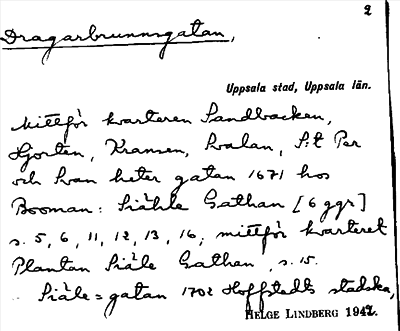 2
Dragarbrunnsgatan,
Uppsala stad, Uppsala län.
Mittför kvarteren Sandbacken,
Hjorten, Kransen, Svalan, S:t Per
och Svan heter gatan 1671 hos
Booman: Siähle Gathan [6 ggr]
s. 5, 6, 11, 12, 13, 16; mittför kvarteret
Plantan Siäle Gathan, s. 15.
Siäle=gatan 1702 Hoffstedts stadska,
HELGE LINDBERG 1942.